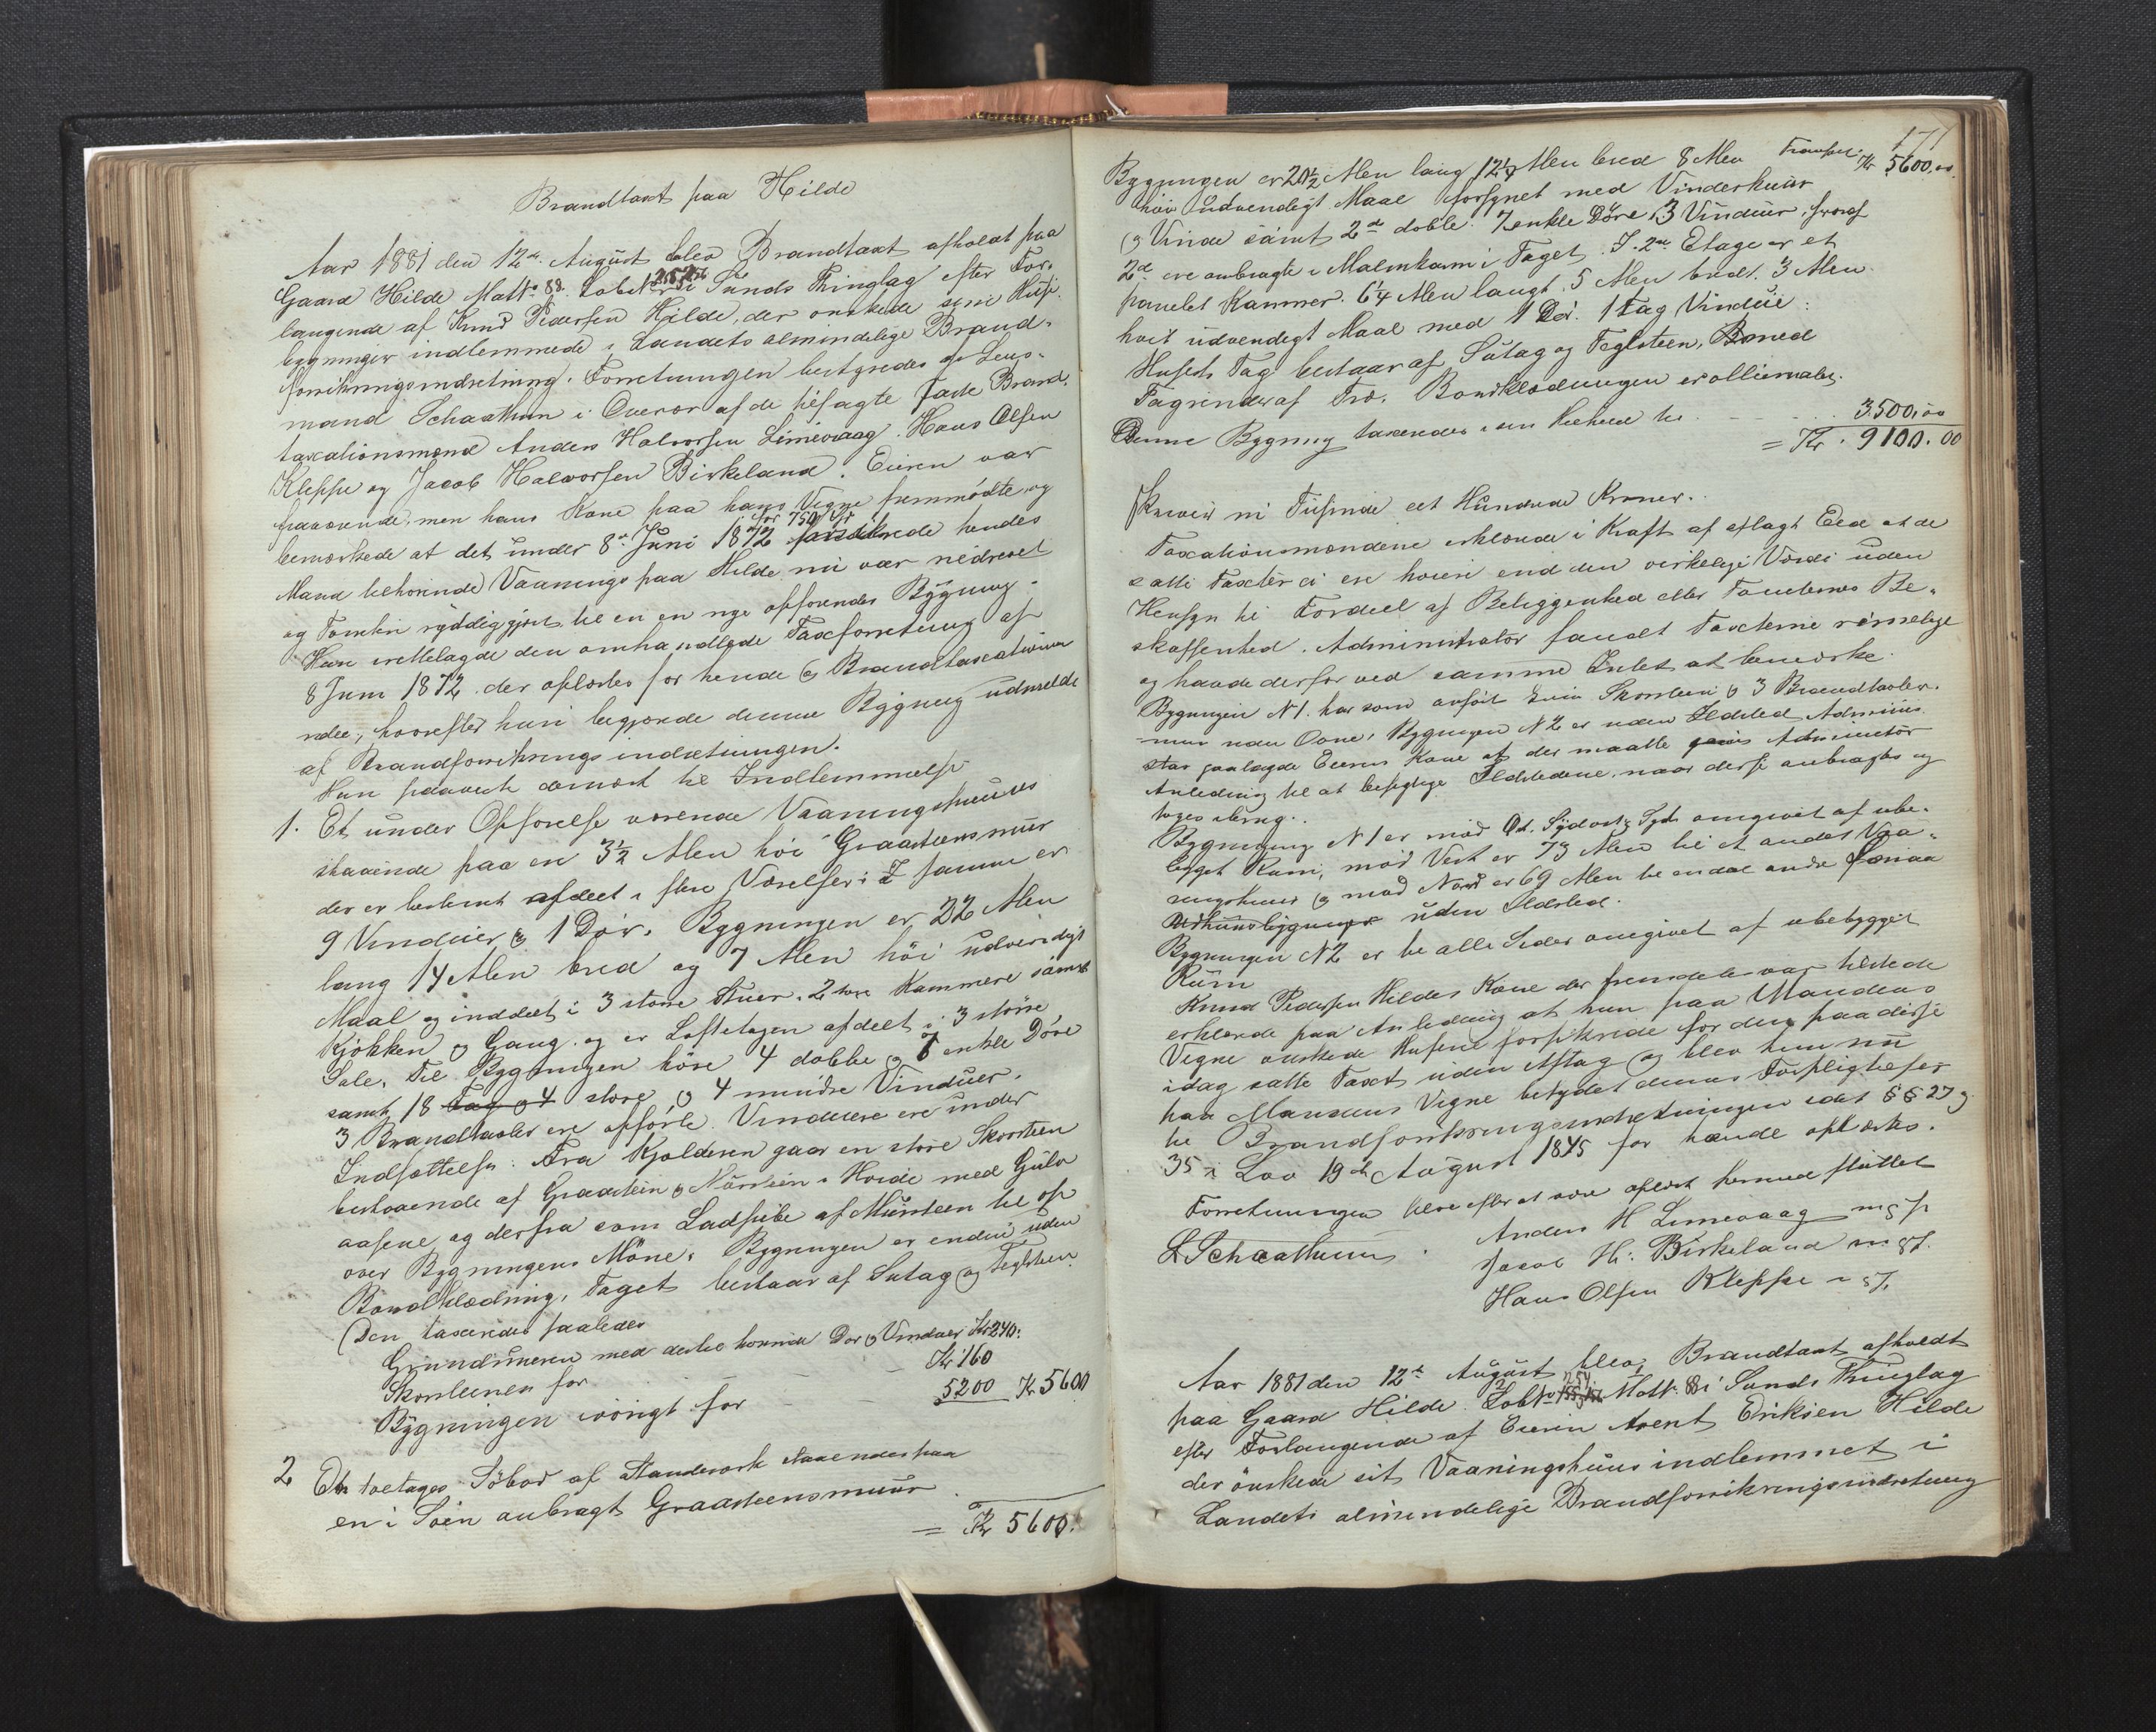 Brandtaxt paa Hilde
Aar 1881 den 12te August blev Brandtaxt afholdt paa
Gaard Hilde Matt: 88. Løbe No 252 i Sunds Thinglag efter For-
langende af Knud Pedersen Hilde, der ønskede sine Huse-
bygninger indlemmede i Landets almindelige Brand-
forsikringsindretning. Forretningen bestyredes af Lens-
mand Schaathun i Overvær af de tilsagte faste Brand-
taxationsmænd Anders Halvorsen Limevaag. Hans Olsen
Kleppe og Jacob Halvorsen Birkeland. Eieren var
fraværende, men hans Kone paa hans Vegne fremmødte og
for 750
bemærkede at det under 8de Juni 1872 forsikrede hendes
Mand tilhørende Vaanings paa Hilde nu var nedrevet
og Tomten ryddiggjort til en en nye opførendes Bygning.
Hun fremlagde den omhandlede Taxforretning af
8 Juni 1872 der oplæstes for hende og Brandtaxationsmæ
ndene, hvorefter hun begjærede denne Bygning udmeldt
af Brandforsikringsindretningen.
Hun paaviste dernæst til Indlemmelse
1. Et under Opførelse værende Vaaningshuus
staaende paa en 3½ Alen høi Graasteensmuur
der er bestemt afdeelt i flere Værelser: I samme er
9 Vinduer og 1 Dør. Bygningen er 22 Alen
lang 14 Alen bred og 7 Alen høi udvendigt
Maal og inddeelt i 3 store Stuer. 2 Kammere samt
Kjøkken og Gang og er Loftetagen afdeelt i 3 større
Sale. Til Bygningen høre 4 dobbe og 8 enkle Døre
samt 18 Fag og 4 store og 4 mindre Vinduer.
3 Brandtavler ere opførte. Vinduerne ere under
Indsættelse: Fra Kjælderen gaar en større Skorsteen
bestaaende af Graasteen og Muursteen i Høide med Gulv
aasene og derfra som Ladpibe af Muursteen til op
over Bygningens Møne. Bygningen er endnu uden
Bordklædning, Taget bestaar af Sutag og Teglsteen.
Den taxeredes saaledes
Grundmuren med dertil hørende Dør og Vinduer Kr 240:
Skorstenen for Kr 160
Bygningen iøvrigt for 5200 Kr 5600
2 En toetages Søbod af Standværk staaendes paa
en i Søen anbragt Graasteensmuur
= Kr 5600.
171
Bygningen er 20½ Alen lang 12¼ Alen bred 8 Alen Transport Kr 5600.00
høi udvendigt Maal forsynet med Vinderskuur
og Vinde samt 2de doble. 7 enkle Døre 13 Vinduer, hvoraf
2de ere anbragte i Malmkarm i Taget. I 2den Etage er et
panelet Kammer. 6¼ Alen langt. 5 Alen bredt. 3 Alen
høit udvendigt Maal med 1 Dør. 1 Fag Vindue:
Husets Tag bestaar af Sutag og Teglsteen, med
Tagrender af Træ. Bordklædningen er olliemalet.
Denne Bygning taxeredes i sin Heelhed til 3500,00
= Kr. 9100.00
Skriver ni Tusinde eet Hundrede Kroner.
Taxationsmændene erklærede i Kraft af aflagt Eed at de
satte Taxter ei ere høiere end den virkelige Værdi uden
Hensyn til Fordeel af Beliggenhed eller Tomternes Be-
skaffenhed. Administrator fandt Taxterne rimelige
og havde derfor ved samme Intet at bemærke.
Bygningen N 1. har som anført kun Skorsteen og 3 Brandtavler.
men uden Ovne, Bygningen N 2 er uden Ildsted. Adminis
strator paalagde Eierens Kone at der maatte Administrator
Anledning til at besigtige Ildstederne, naar disse anbragtes og
toges i brug..
Bygning N 1 er mod Øst, Sydost og Syd omgivet af ube-
bygget Rum, mod Vest er 73 Alen til et andet Vaa-
ningshuus og mod Nord er 69 Alen til endel andre
Udhuusbygninger uden Ildsted.
Bygningen N 2 er til alle Sider omgivet af ubebygget
Rum
Knud Pedersen Hildes Kone der fremdeles var tilstede
erklærede paa Anledning at hun paa Mandens
Vegne ønskede Husene forsikrede for den paa disse
idag satte Taxt uden Afslag og blev hun nu
paa Mandens Vegne betydet dennes Forpligtelser
til Brandforsikringsindretningen idet §§ 27 og
35 i Lov 19de August 1845 for hende oplæstes.
Forretningen blev efter at være oplæst hermed sluttet
L Schaathun. Anders H Limevaag m f P
Jacob H: Birkeland m f P.
Hans Olsen Kleppe m f P.
Aar 1881 den 12te August blev Brandtaxt afholdt
paa Gaard Hilde. Løbe No 254 Matt: 88 i Sunds Thinglag
efter Forlangende af Eieren Avent Eriksen Hilde
der ønskede sit Vaaningshuus indlemmet i
Landets almindelige Brandforsikringsindretning